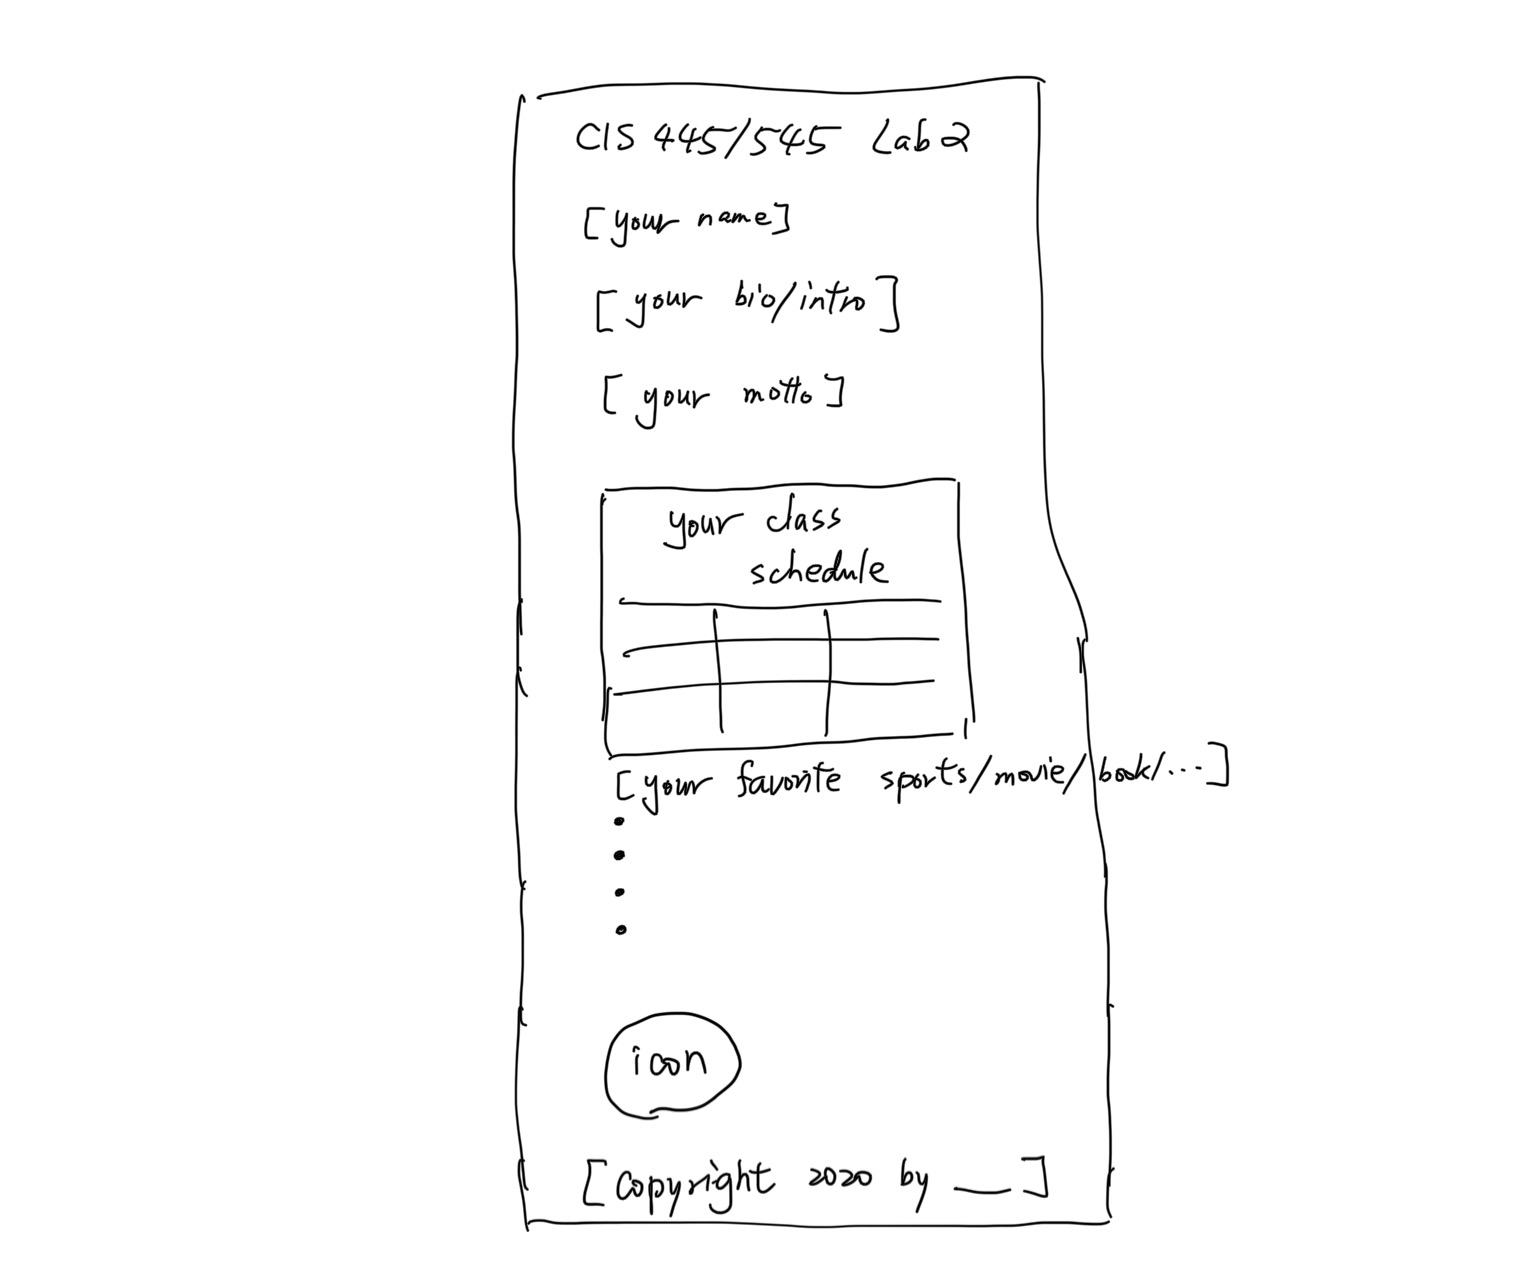 CIS 445/545 Lab 2
[your name]
[your bio/intro]
[your motto]
your class
schedule
[your favorite sports/movie/book/...]
icon
[copyright 2020 by __]